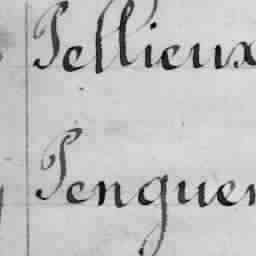 Pellieux
Penguer